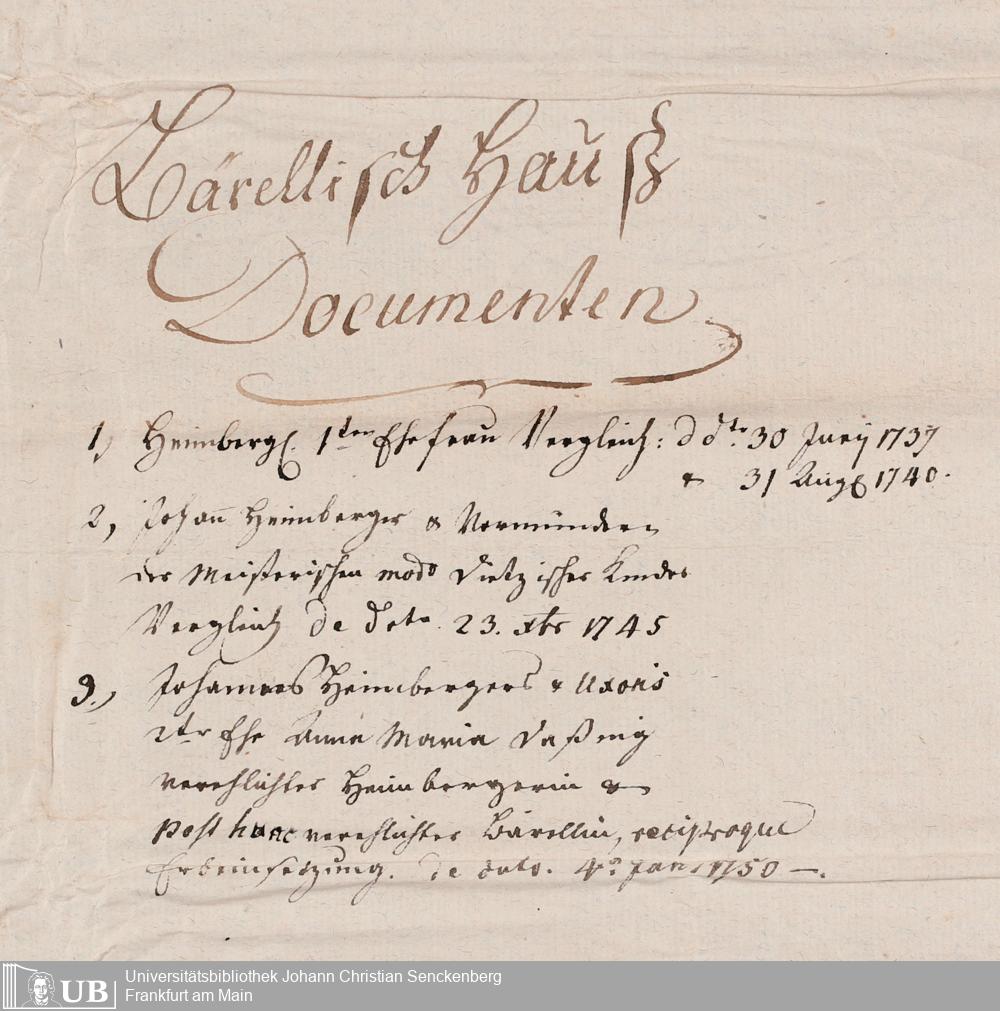 Bärellisch Hauß
Documenten
1, Heimberg. 1ten Ehefrau Vergleich: d dto. 30 Juny 1737
& 31 Aug 1740.
2, Johann Heimberger & Vormünder
der Meisterischen modo Dietzischer Kinder
Vergleich de dato 23. xbr 1745
3., Johannes Heimbergers & Uxoris
2tr Ehe Anna Maria
verehlichter Heimbergerin &
post hunc verehlichter Bärellin, reciproque
Erbeinsetzung. de dato. 4o Jan. 1750 —.
Universitätsbibliothek Johann Christian Senckenberg
Frankfurt am Main
UB